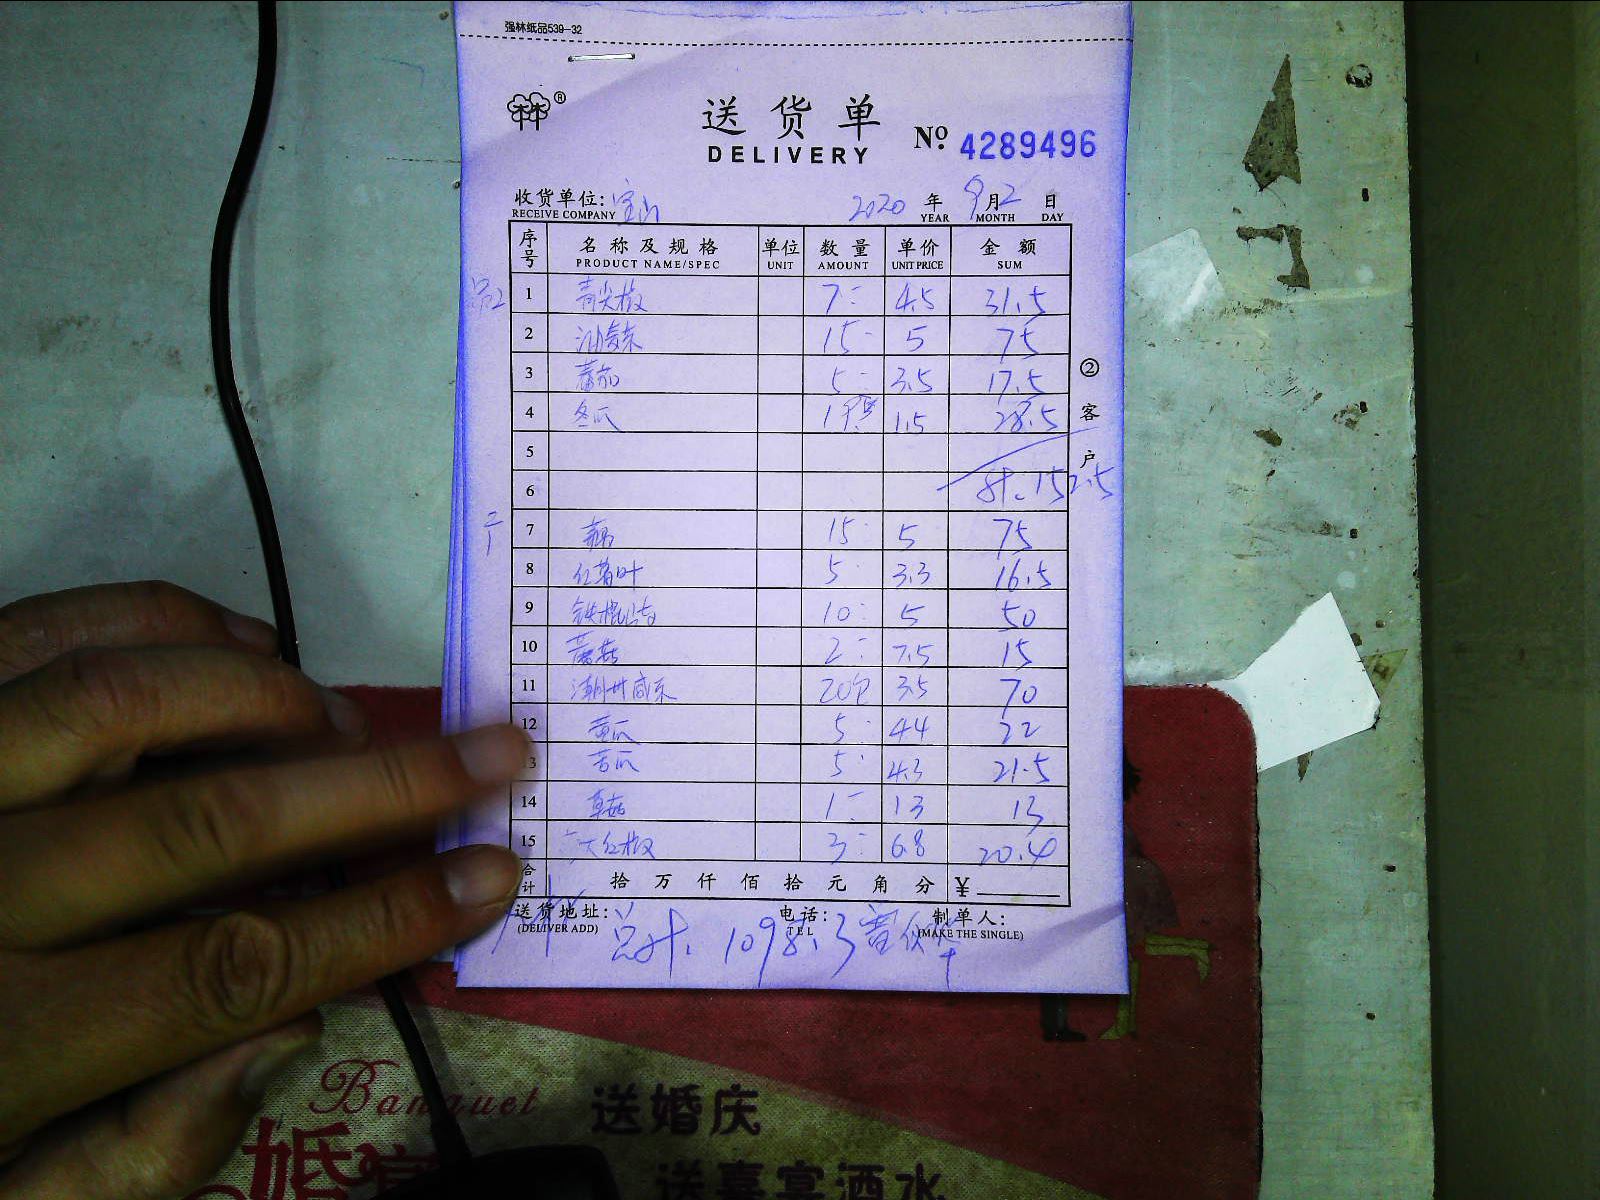 强林纸品539-32
林林®
送货单
DELIVERY
№ 4289496
收货单位: 宝山 2020年9月2日
RECEIVE COMPANY YEAR MONTH DAY
序号 名称及规格 单位 数量 单价 金额
PRODUCT NAME/SPEC UNIT AMOUNT UNIT PRICE SUM
1 青尖椒 7- 4.5 31.5
2 油麦菜 15- 5 75
3 蕃茄 5- 3.5 17.5
4 冬瓜 19 1.5 28.5
5
6 计:152.5
7 15 5 75
8 红薯叶 5 3.3 16.5
9 铁棍山药 10- 5 50
10 蘑菇 2- 7.5 15
11 潮州咸菜 20包 3.5 70
12 黄瓜 5 4.4 22
13 苦瓜 5 4.3 21.5
14 草菇 1- 13 13
15 大红椒 3- 6.8 20.4
合计 拾万仟佰拾元角分 ¥
②客户
送货地址: 电话: 制单人:
(DELIVER ADD) TEL (MAKE THE SINGLE)
总计:1098.3
Banquet
送婚庆
婚宴
送喜宴酒水